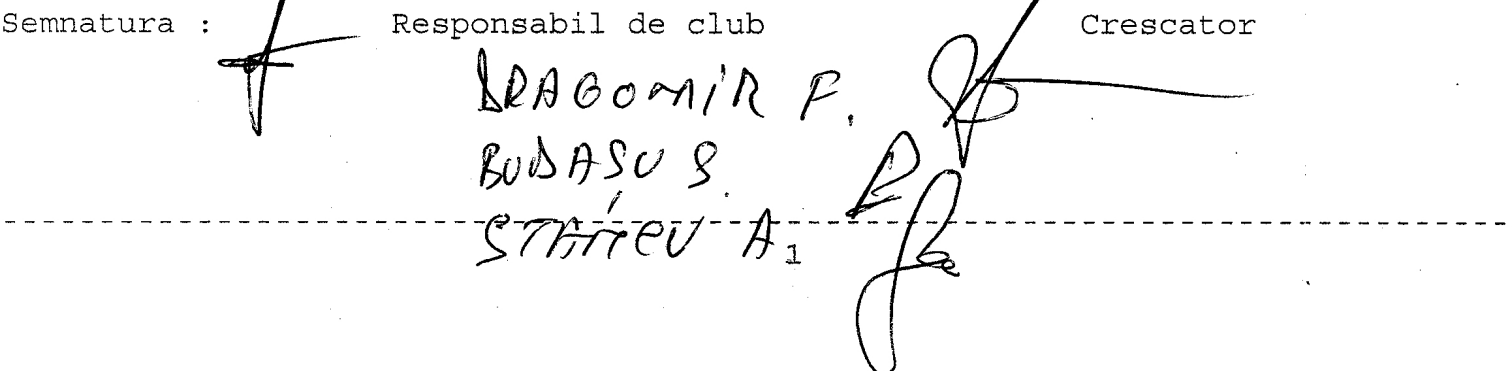 Semnatura : Responsabil de club Crescator
DRAGOMIR F.
BUDAȘU S.
A.
1